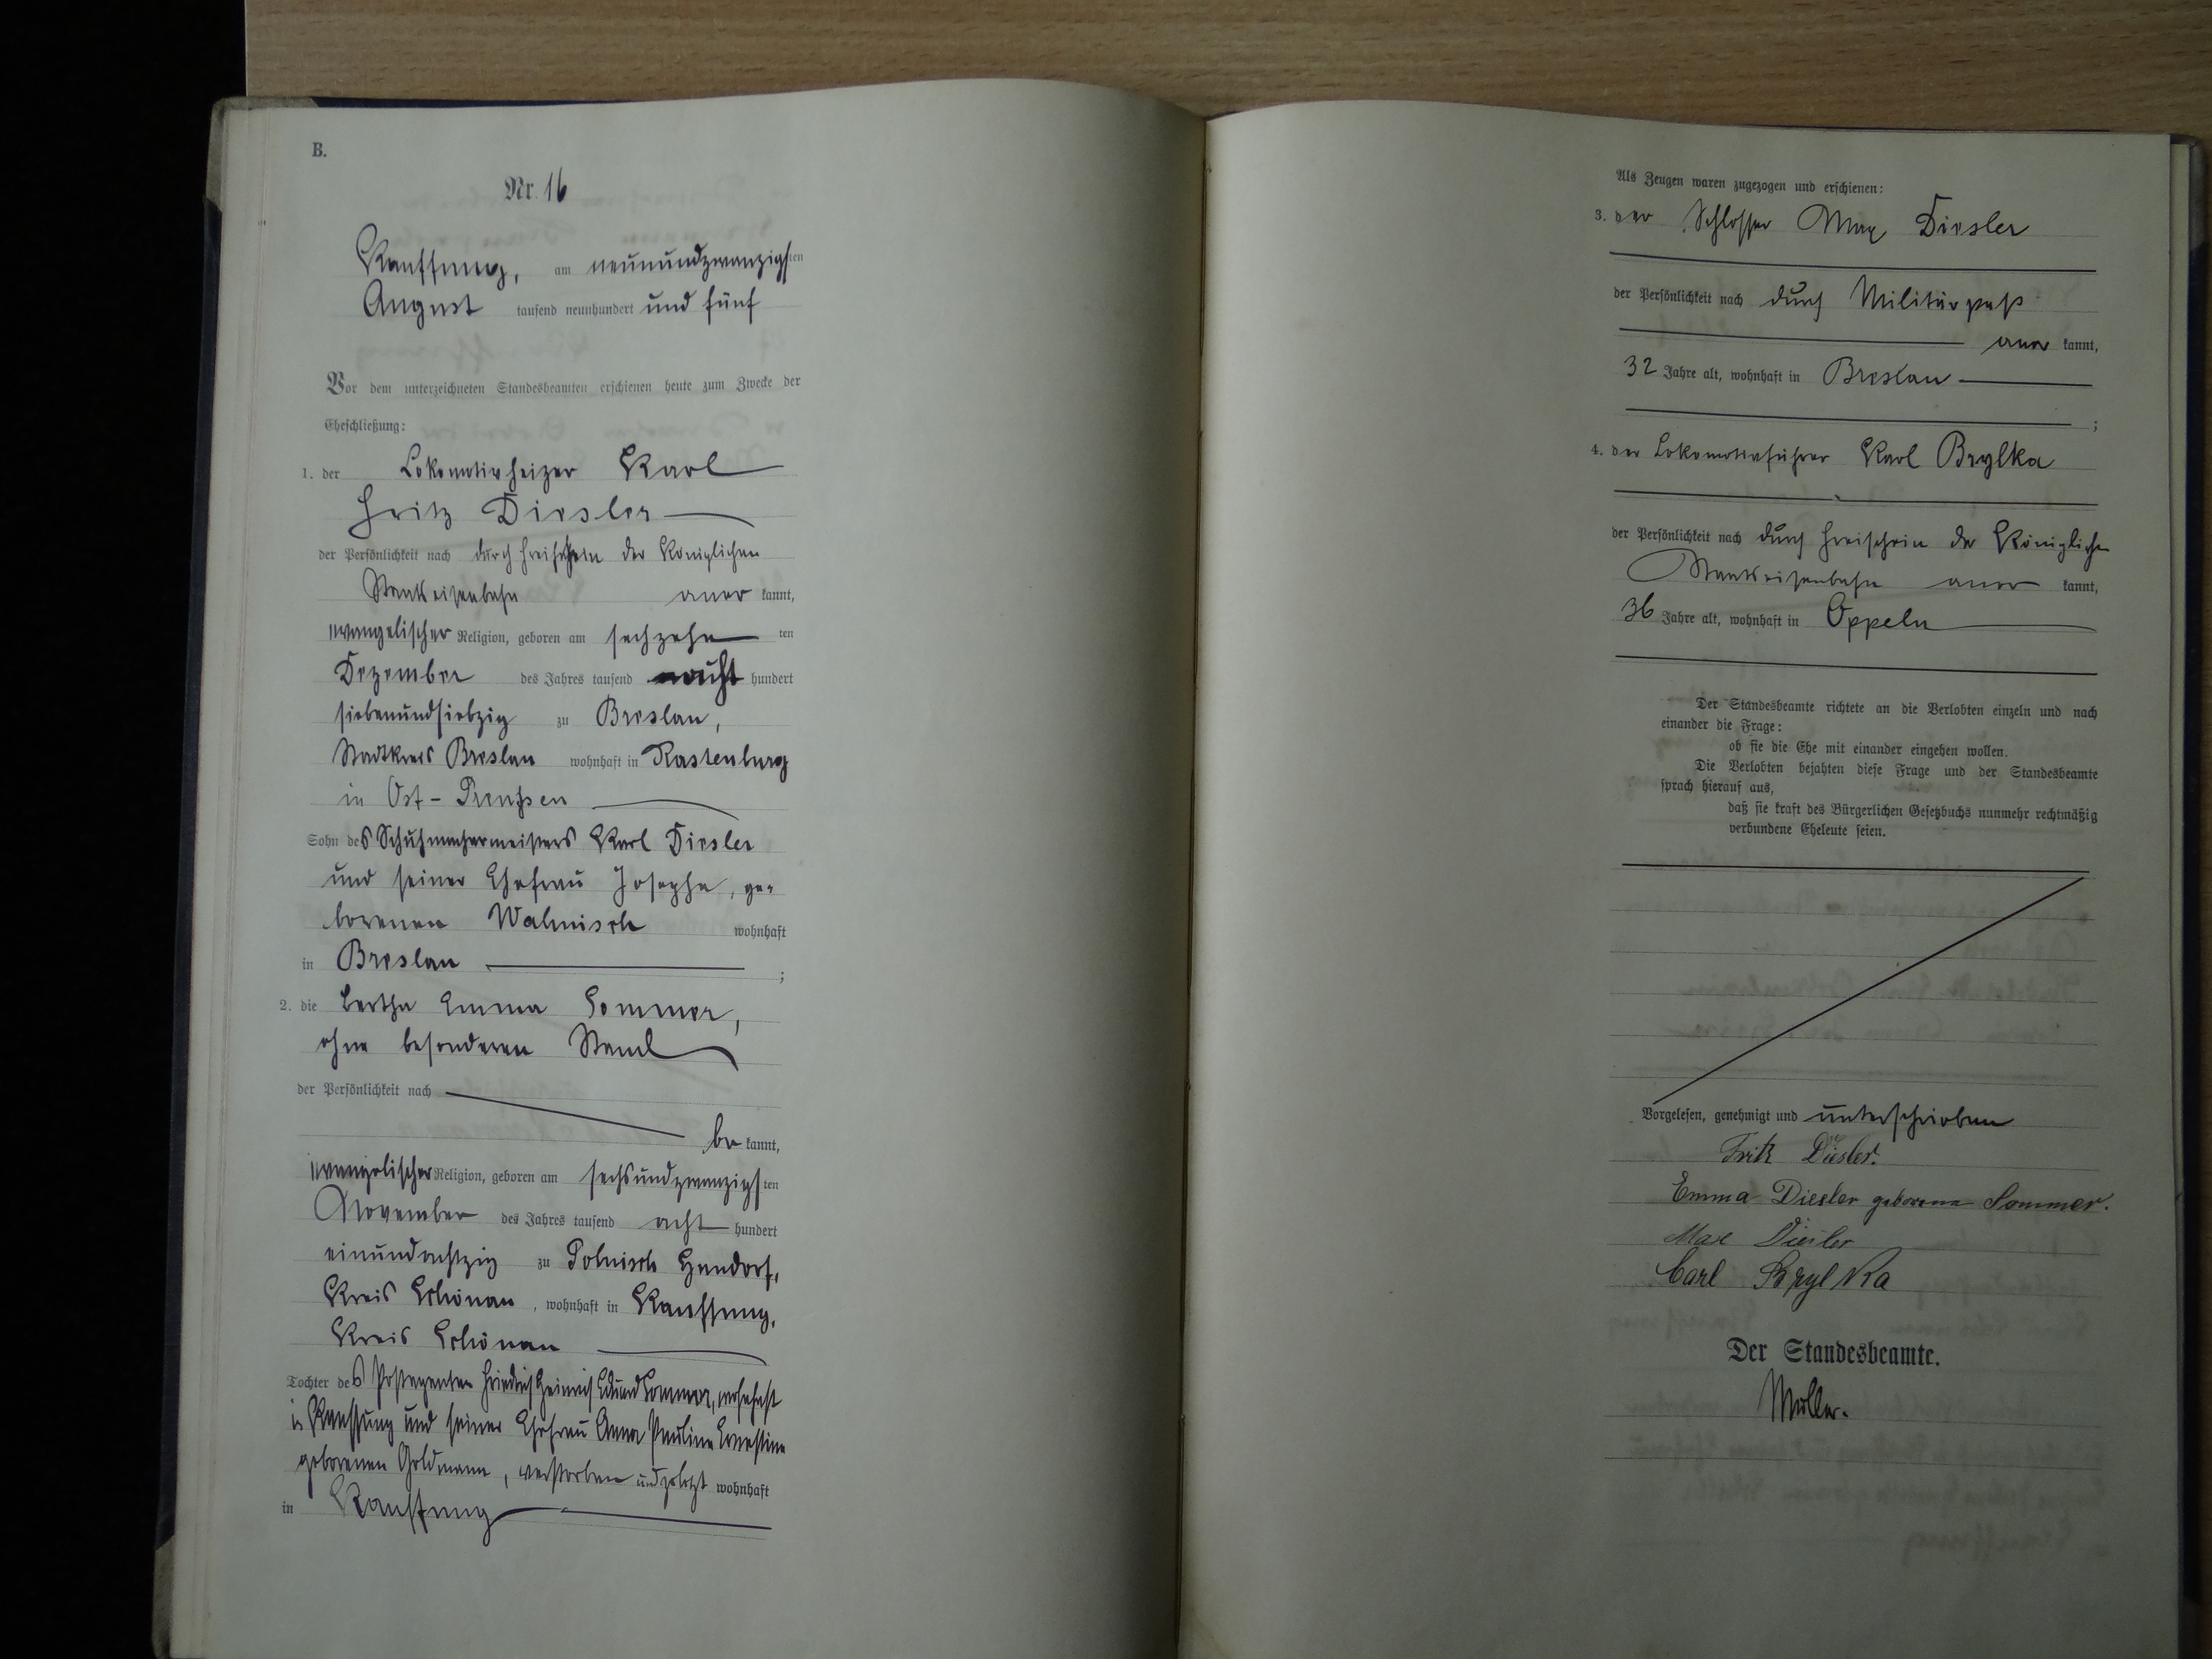 B.
Nr. 16
Kauffung, am neunundzwanzigsten
August tausend neunhundert und fünf
Vor dem unterzeichneten Standesbeamten erschienen heute zum Zwecke der
Eheschließung:
1. der Lokomotivheizer Karl
Fritz Diesler
der Persönlichkeit nach durch Freischein der Königlichen
Staatseisenbahn aner kannt,
evangelischer Religion, geboren am sechzehn ten
Dezember des Jahres tausend acht hundert
siebenundsiebzig zu Breslau,
Stadtkreis Breslau wohnhaft in Rastenburg
in Ost-Preußen
Sohn des Schuhmachermeisters Karl Diesler
und seiner Ehefrau Josepha, ge-
borenen Walnisch wohnhaft
in Breslau ;
2. die Bertha Emma Sommer,
ohne besonderen Stand
der Persönlichkeit nach
be kannt,
evangelischer Religion, geboren am sechsundzwanzigsten
November des Jahres tausend acht hundert
einundachtzig zu Polnisch Hundorf,
Kreis Schönau, wohnhaft in Kauffung,
Kreis Schönau
Tochter des Postagenten Friedrich Heinrich Eduard Sommer, wohnhaft
in Kauffung und seiner Ehefrau Anna Pauline Ernestine
geborenen Goldmann, verstorben und zuletzt wohnhaft
in Kauffung
Als Zeugen waren zugezogen und erschienen:
3. der Schlosser Max Diesler
der Persönlichkeit nach durch Militärpaß
aner kannt,
32 Jahre alt, wohnhaft in Breslau
;
4. der Lokomotivführer Karl Brylka
der Persönlichkeit nach durch Freischein der Königlichen
Staatseisenbahn aner kannt,
36 Jahre alt, wohnhaft in Oppeln
Der Standesbeamte richtete an die Verlobten einzeln und nach
einander die Frage:
ob sie die Ehe mit einander eingehen wollen.
Die Verlobten bejahten diese Frage und der Standesbeamte
sprach hierauf aus,
daß sie kraft des Bürgerlichen Gesetzbuchs nunmehr rechtmäßig
verbundene Eheleute seien.
Vorgelesen, genehmigt und unterschrieben
Fritz Diesler.
Emma Diesler geborene Sommer.
Max Diesler
Carl Brylka
Der Standesbeamte.
Müller.